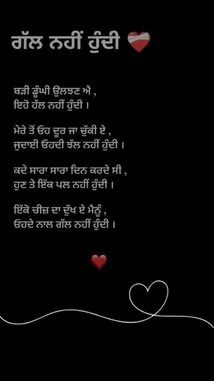 ਗੱਲ ਨਹੀਂ ਹੁੰਦੀ ❤️‍🩹
ਬੜੀ ਡੂੰਘੀ ਉਲਝਣ ਐ ,
ਇਹੋ ਹੱਲ ਨਹੀਂ ਹੁੰਦੀ ।
ਮੇਰੇ ਤੋਂ ਓਹ ਦੂਰ ਜਾ ਚੁੱਕੀ ਏ ,
ਜੁਦਾਈ ਓਹਦੀ ਝੱਲ ਨਹੀਂ ਹੁੰਦੀ ।
ਕਦੇ ਸਾਰਾ ਸਾਰਾ ਦਿਨ ਕਰਦੇ ਸੀ ,
ਹੁਣ ਤੇ ਇੱਕ ਪਲ ਨਹੀਂ ਹੁੰਦੀ ।
ਇੱਕੋ ਚੀਜ਼ ਦਾ ਦੁੱਖ ਏ ਮੈਨੂੰ ,
ਓਹਦੇ ਨਾਲ ਗੱਲ ਨਹੀਂ ਹੁੰਦੀ ।